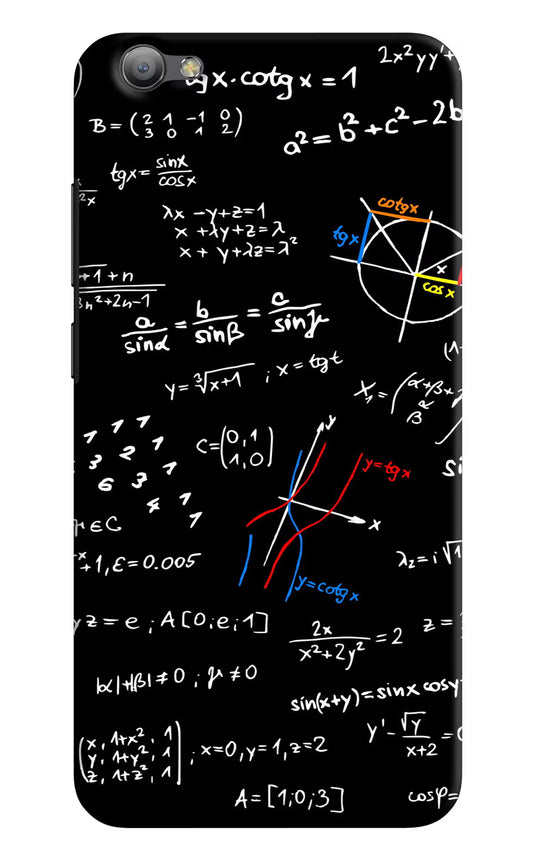 tgx·cotgx=1
2x²yy'+
B=(2 1 -1 0
3 0 1 2)
a²=b²+c²-2b
tgx=sinx/cosx
2x
λx-y+z=1
x+λy+z=λ
x+y+λz=λ²
cotgx
tgx
x
cosx
+1+n
3n²+2n-1
a/sinα=b/sinβ=c/sinγ
y=∛x+1 ; x=tgt
X₁=(α+β+
α
β
1 1 1
3 2 1
6 3 1
4 1
C=(0,1
1,0)
y
y=tgx
x
y=cotgx
si
∈C
+1,ε=0.005
λ₂=i√1
yz=e ; A[0;e;1]
2x/x²+2y²=2
z=
|α|+|β|≠0 ; γ≠0
sin(x+y)=sinxcosy
(x, 1+x², 1
y, 1+y², 1
z, 1+z², 1) ; x=0,y=1,z=2
y'-√y/x+2=0
A=[1;0;3]
cosφ=